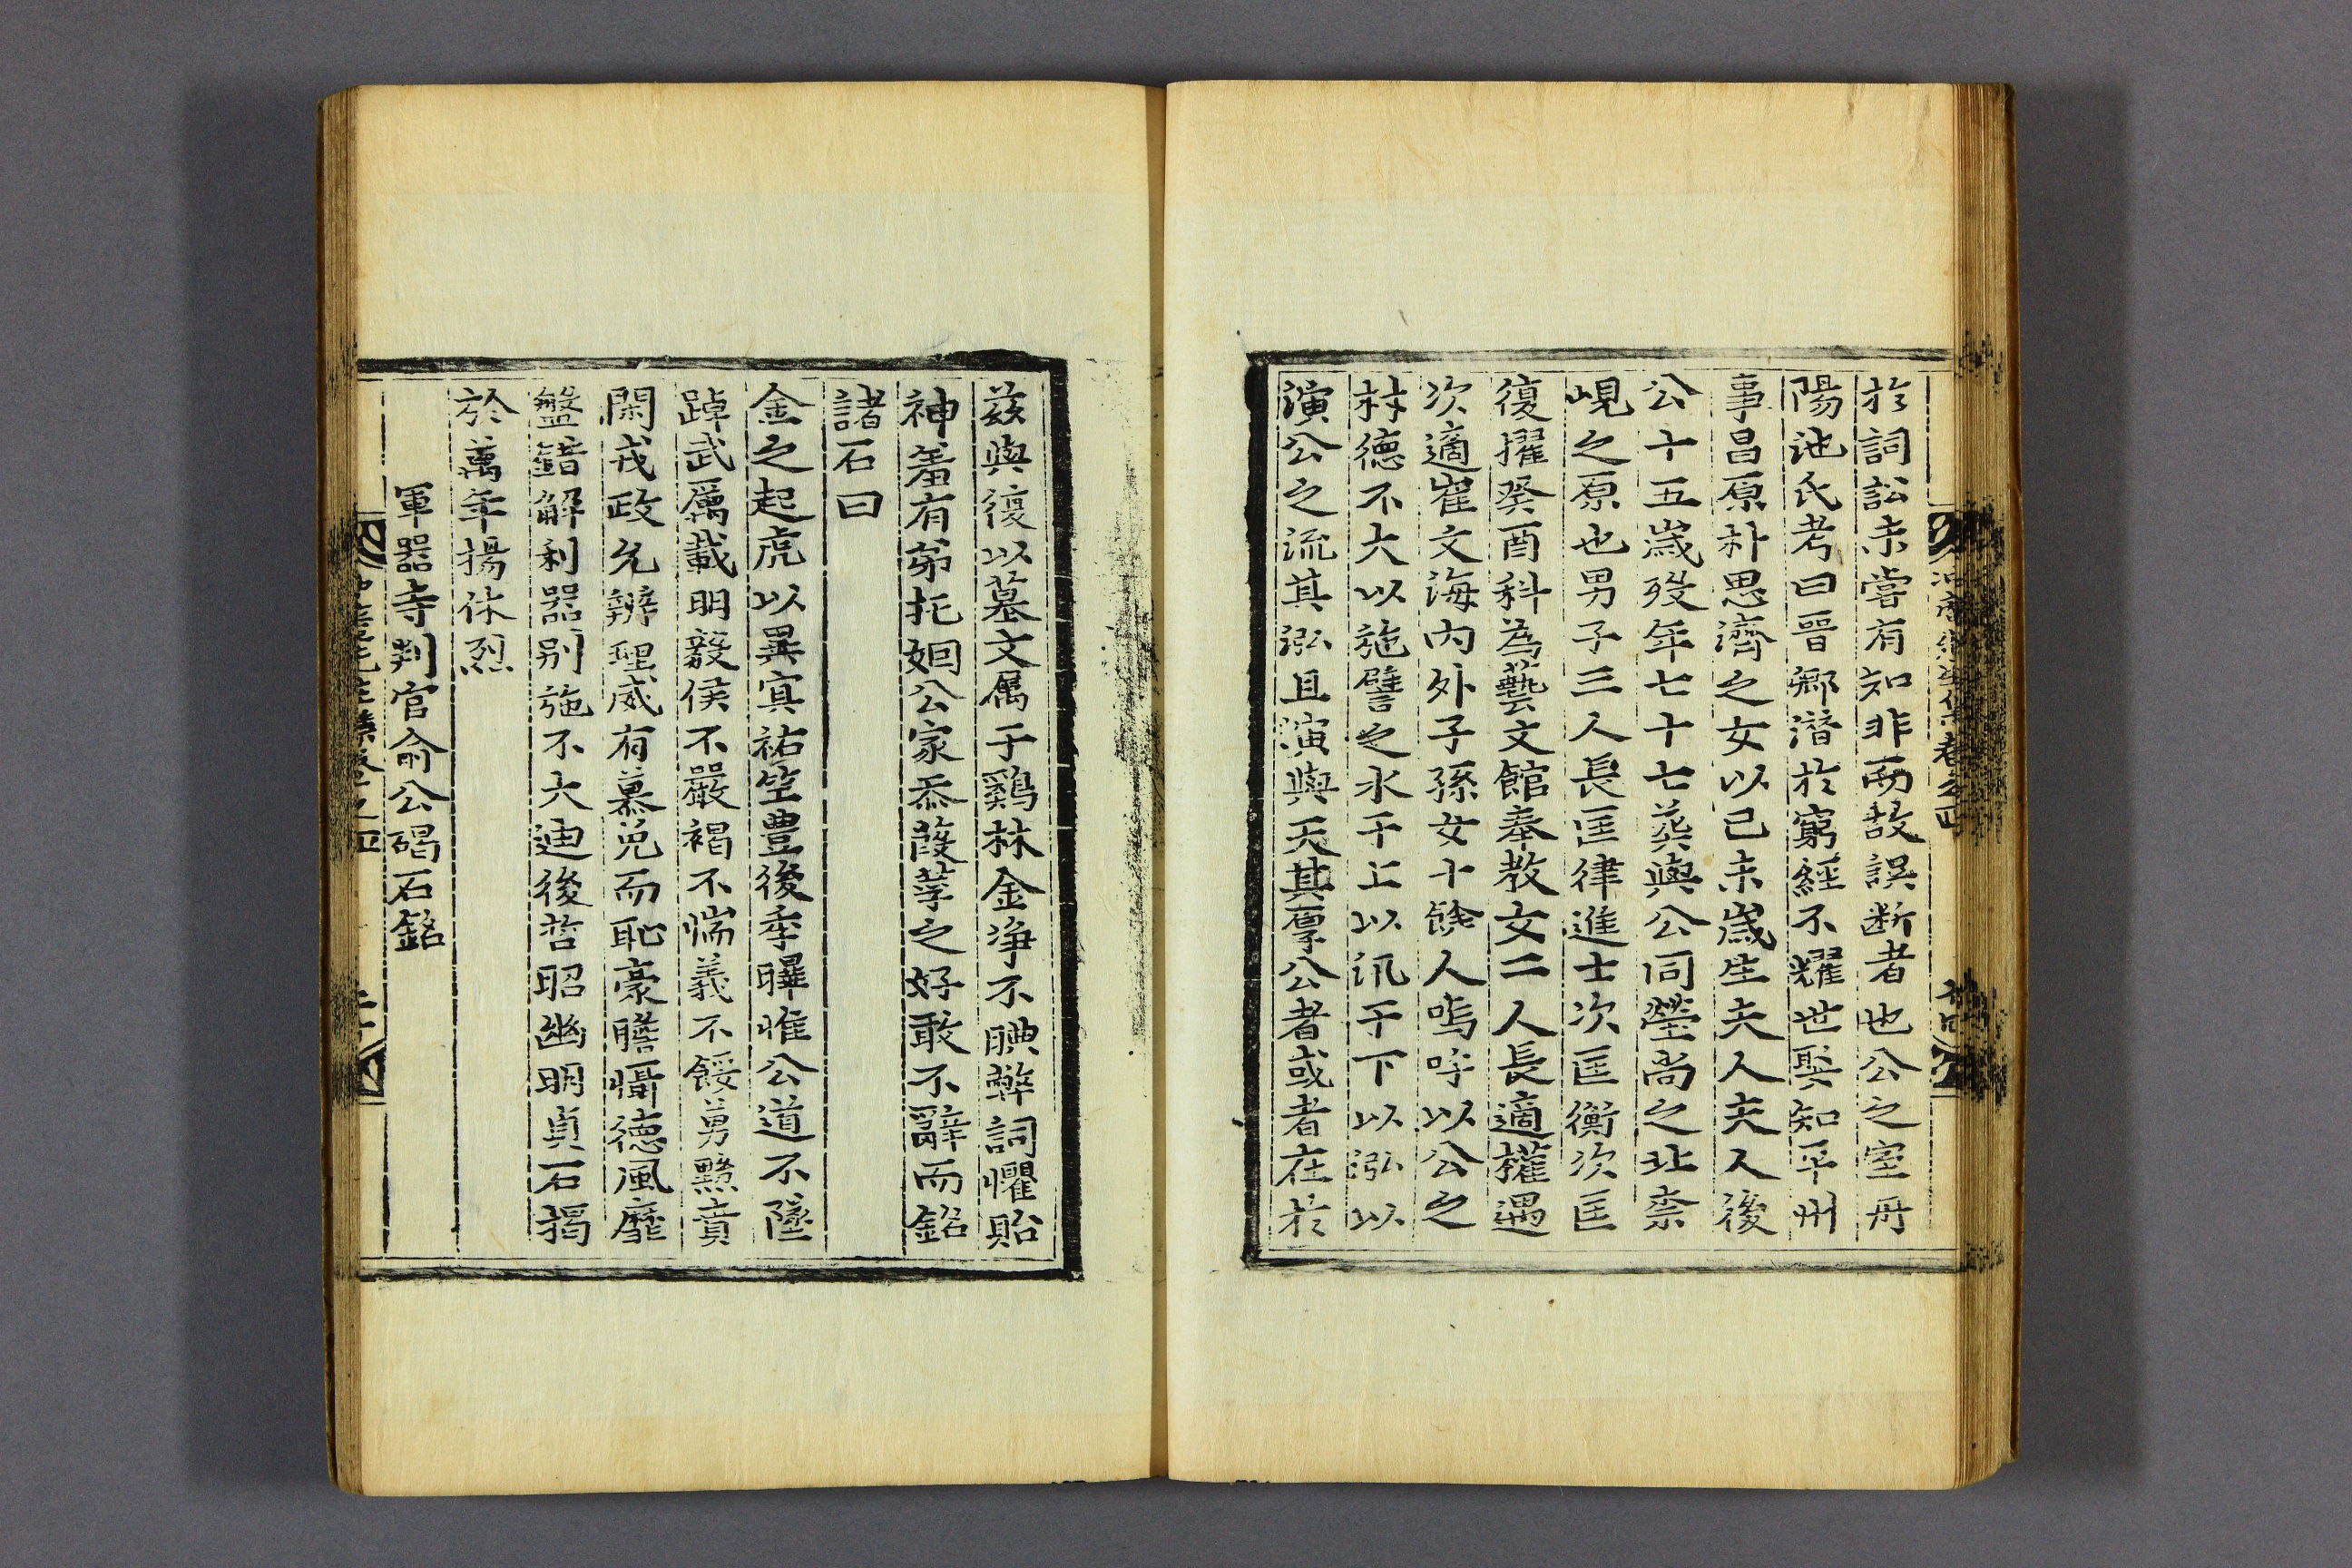 於詞訟未嘗有知非而故誤断者也公之室丹
陽池氏考曰晋鄉潜於窮經不耀世娶知平州
事昌原朴思濟之女以己未歲生夫人夫人後
公十五歲歿年七十七葬與公同塋尚之北柰
峴之原也男子三人長匡律進士次匡衡次匡
復擢癸酉科為藝文館奉教女二人長適權遇
次適崔文海內外子孫女十餘人嗚呼以公之
材德不大以施譬之水于上以汎于下以泓以
演公之流其泓且演與天其厚公者或者在於
茲與復以墓文属于鷄林金净不腆辭詞懼貽
神羞有弟托姻公家忝葭莩之好敢不辭而銘
諸石曰
金之起虎以異㝠祐笁豊後季曄惟公道不墜
踔武厲載明毅侯不嚴褐不惴義不餒勇黥賁
閑戎政允辨理威有慕兇而恥豪膽懾德風靡
盤錯解利器別施不大迪後哲昭幽明貞石揭
於萬年揚休烈
軍器寺判官俞公碣石銘